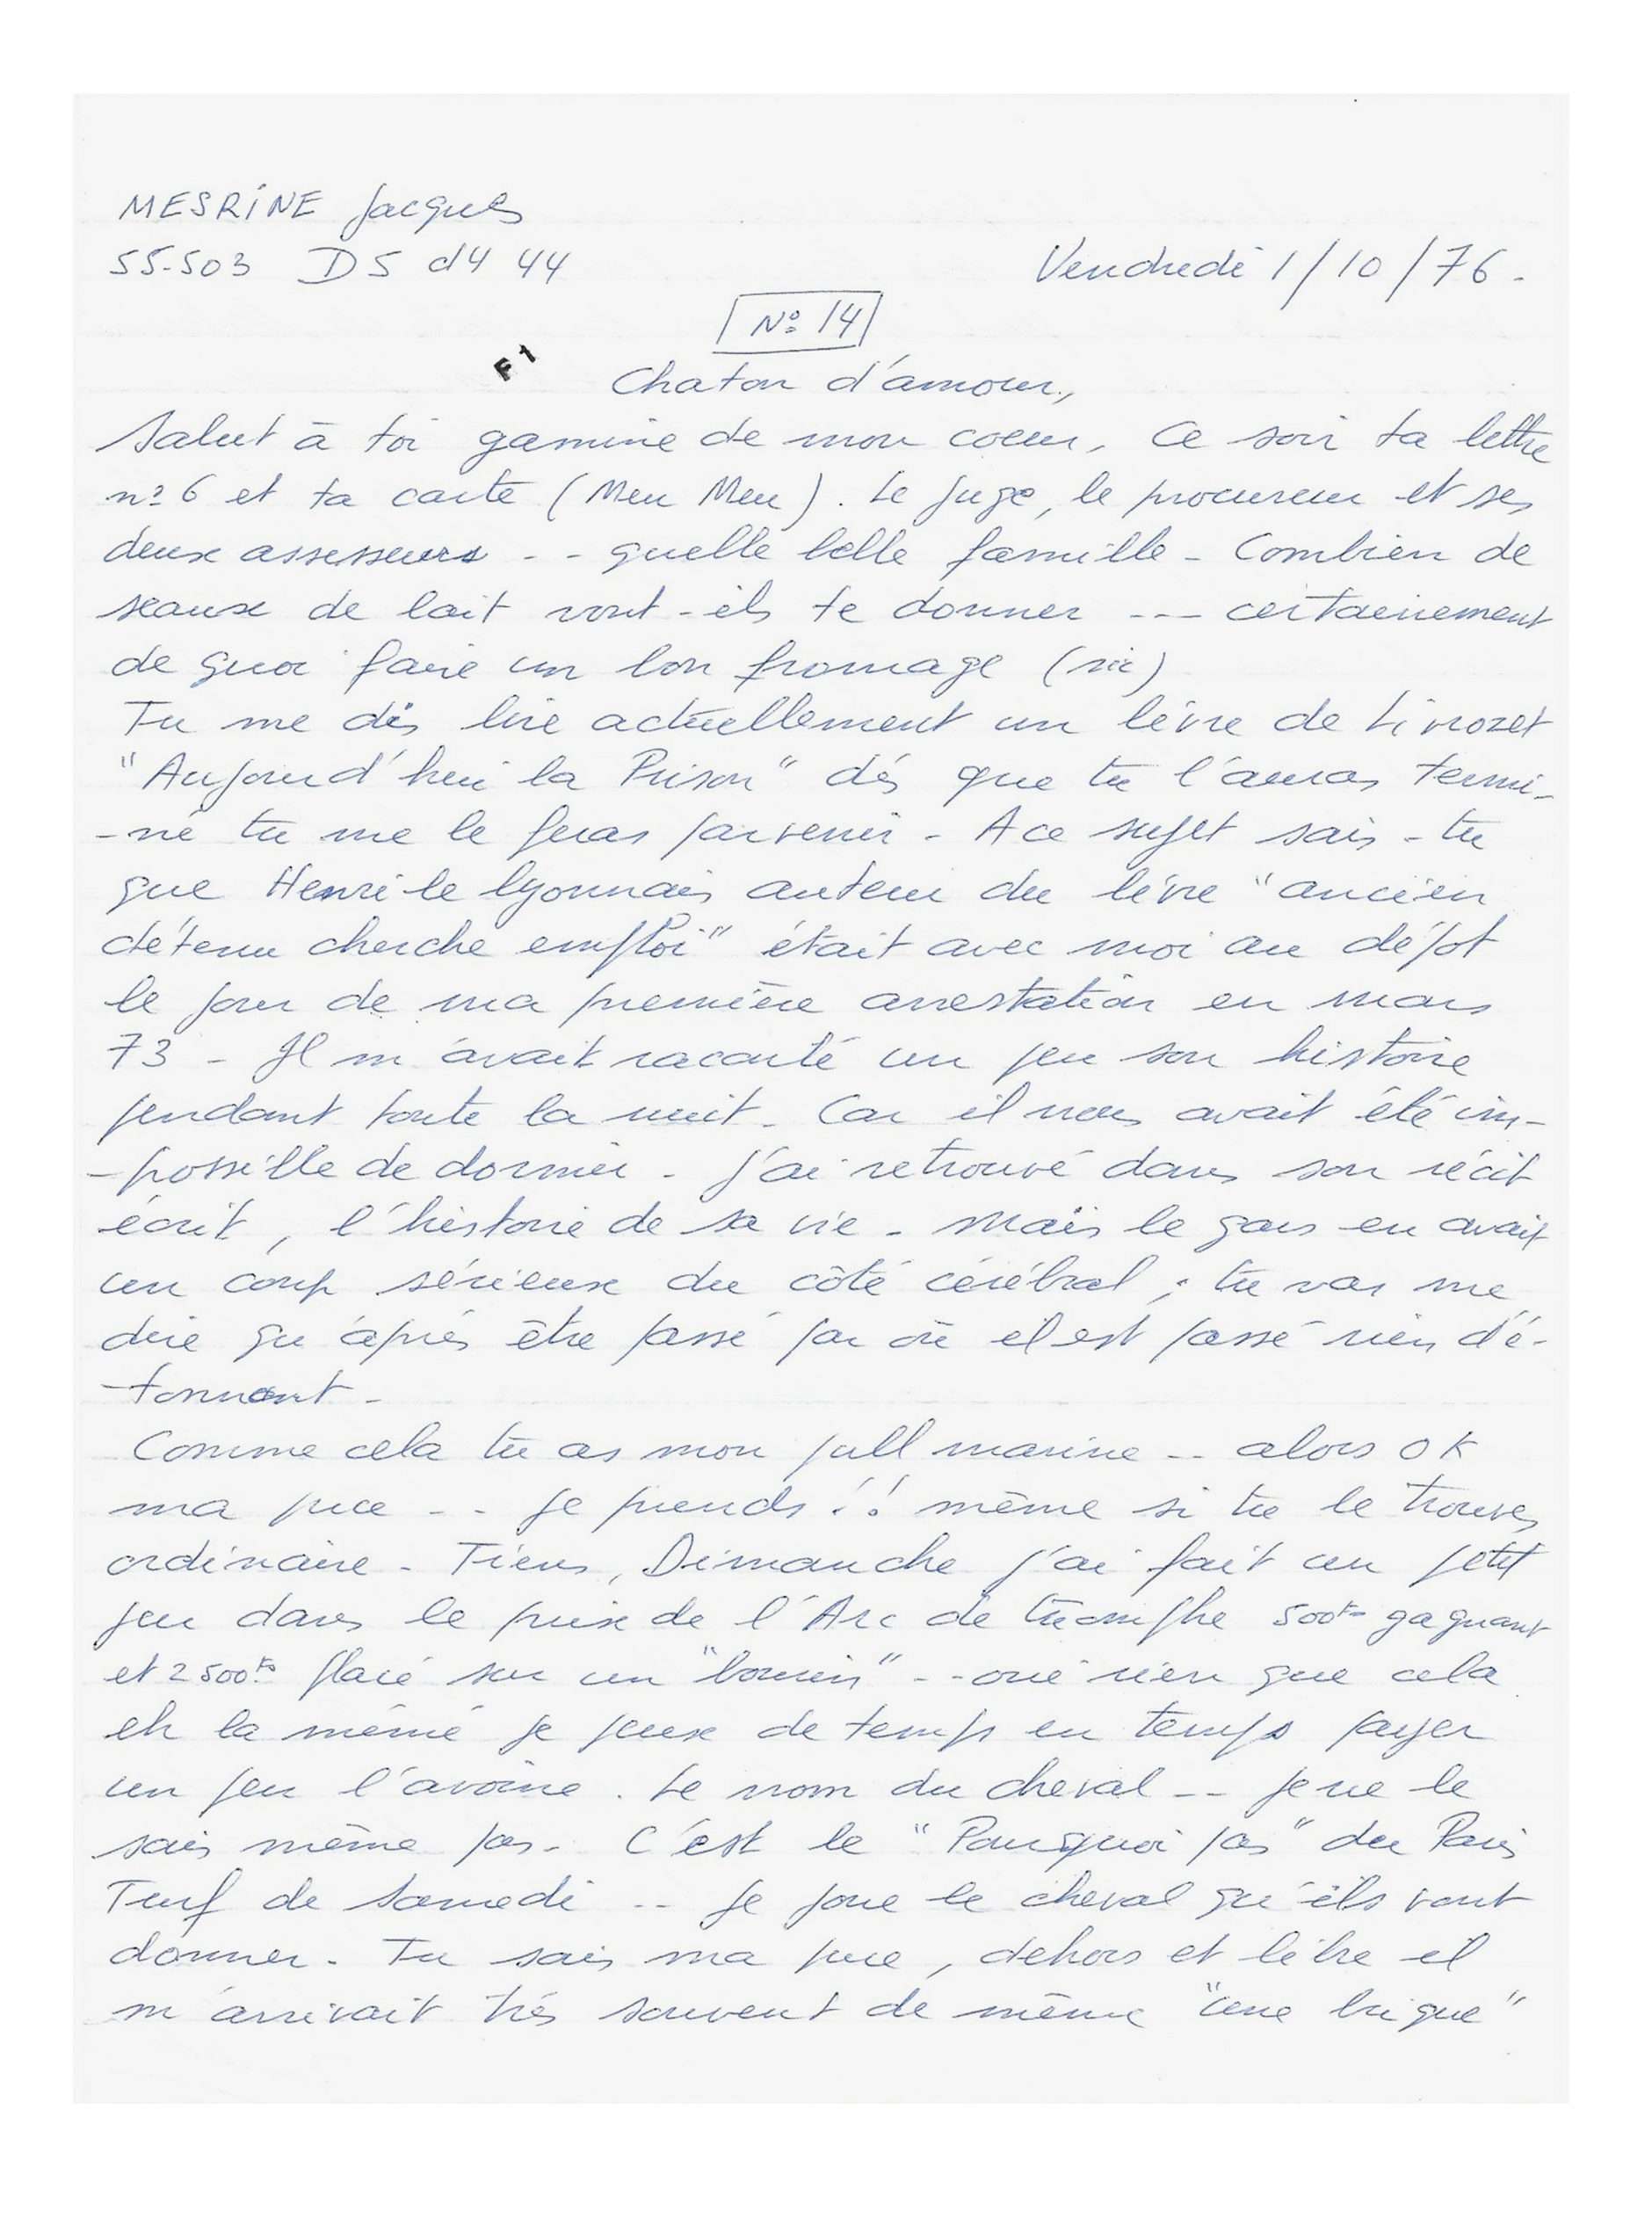 MESRINE Jacques
55-503 D5 d4 44
Vendredi 1/10/76.
N° 14
F1
Chaton d'amour,
Salut à toi gamine de mon coeur, Ce soir ta lettre
n° 6 et ta carte (Meu Meu). Le juge, le procureur et ses
deux assesseurs -- quelle belle famille - Combien de
seaux de lait vont-ils te donner --- certainement
de quoi faire un bon fromage (rir)
Tu me dis lire actuellement un livre de Livrozet
"Aujourd'hui la Prison" dés que tu l'auras termi-
-né tu me le feras parvenir - A ce sujet sais-tu
que Henri le lyonnais auteur du livre "ancien
détenu cherche emploi" était avec moi au dépot
le jour de ma première arrestation en mars
73 - Il m'avait raconté un peu son histoire
pendant toute la nuit. Car il nous avait été im-
-possible de dormir - J'ai retrouvé dans son récit
écrit, l'histoire de sa vie - Mais le gars en avait
un coup sérieux du côté cérébral ; tu vas me
dire qu'aprés être passé par où il est passé rien d'é-
-tonnant -
Comme cela tu as mon pull marine -- alors OK
ma puce -- je prends !! même si tu le trouves
ordinaire - Tiens, Dimanche j'ai fait un petit
jeu dans le prix de l'Arc de triomphe 500 Fs gagnant
et 2500 Fs placé sur un "bourrin" -- oui rien que cela
eh la mémé je peux de temps en temps payer
un peu l'avoine. Le nom du cheval -- je ne le
sais même pas - C'est le "Pourquoi pas" du Paris
Turf de Samedi -- Je joue le cheval qu'ils vont
donner - Tu sais ma puce, dehors et libre il
m'arrivait très souvent de mettre "une brique"